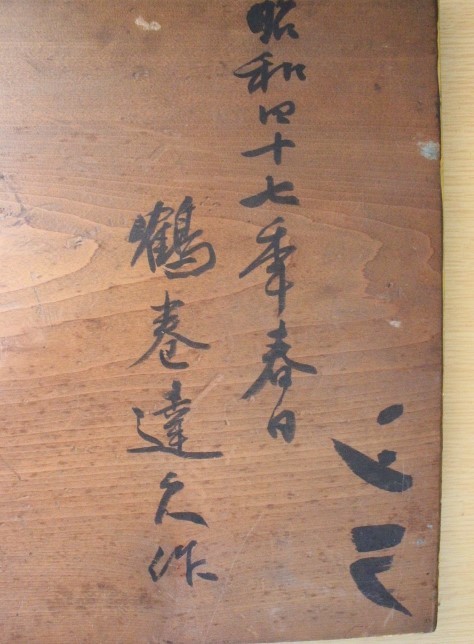 昭和四十七年春日
鶴巻達作